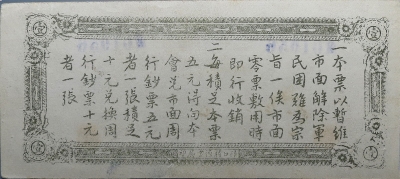 一本票以暫維
市面解除軍
民困難爲宗
旨一俟市面
零票敷用時
即行收銷
二每積足本票
五元得向本
會兌市面周
行鈔票五元
者一張積足
十元兌換周
行鈔票十元
者一張